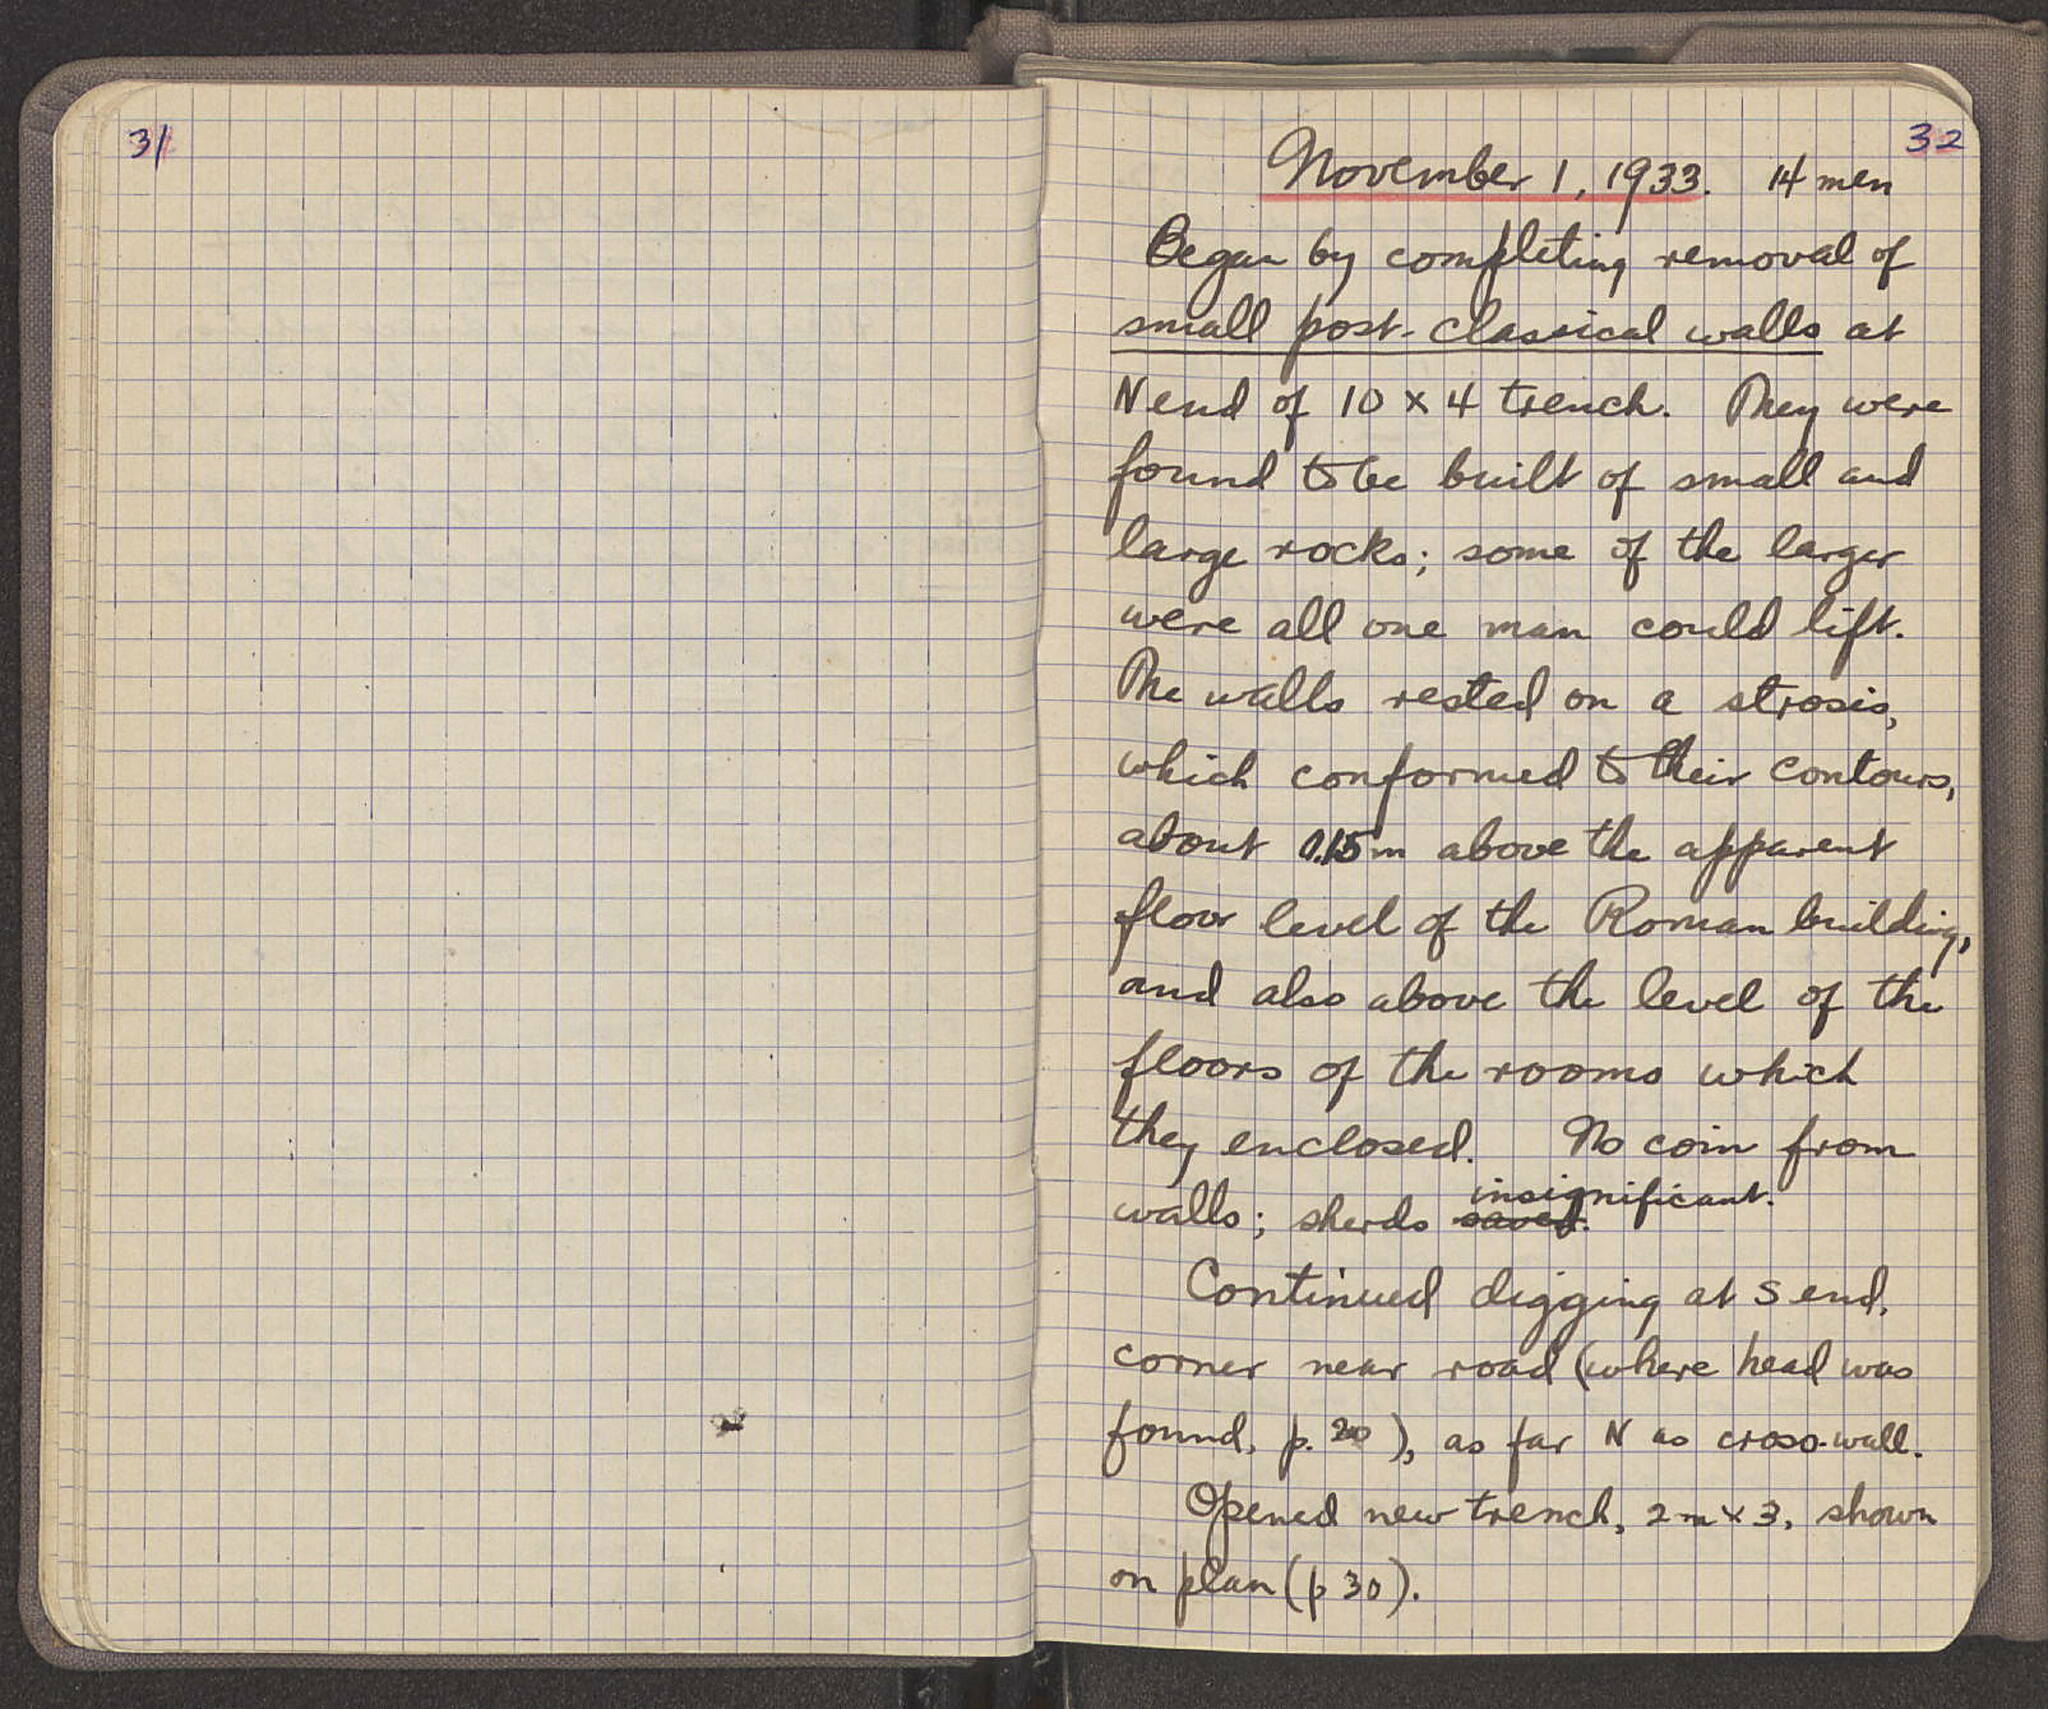 31
32
November 1, 1933. 14 men
Began by completing removal of
small post-classical walls at
N end of 10 x 4 trench. They were
found to be built of small and
large rocks; some of the larger
were all one man could lift.
The walls rested on a strosis,
which conformed to their contours,
about 0.15m above the apparent
floor level of the Roman building,
and also above the level of the
floors of the rooms which
they enclosed. No coin from
insignificant.
walls; sherds saved.
Continued digging at S end,
corner near road (where head was
found, p. 20), as far N as cross-wall.
Opened new trench, 2m x 3, shown
on plan (p 30).